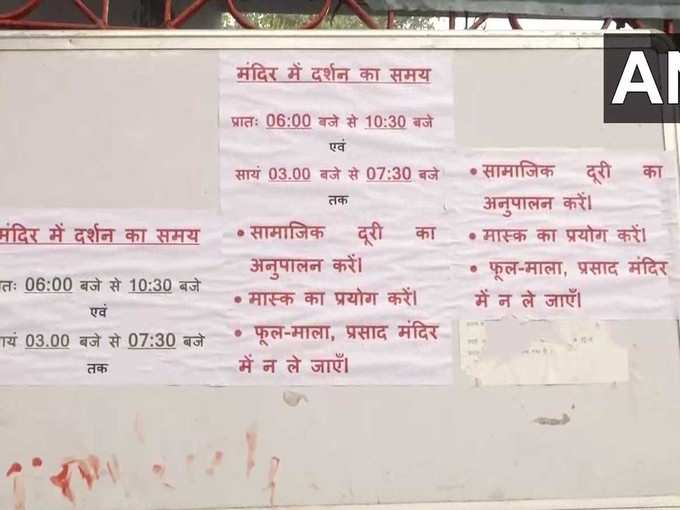 मंदिर में दर्शन का समय
प्रातः 06:00 बजे से 10:30 बजे
एवं
सायं 03.00 बजे से 07:30 बजे
तक
• सामाजिक दूरी का
अनुपालन करें।
• मास्क का प्रयोग करें।
• फूल-माला, प्रसाद मंदिर
में न ले जाएँ।
मंदिर में दर्शन का समय
तः 06:00 बजे से 10:30 बजे
एवं
ायं 03.00 बजे से 07:30 बजे
तक
• सामाजिक दूरी का
अनुपालन करें।
• मास्क का प्रयोग करें।
• फूल-माला, प्रसाद मंदिर
में न ले जाएँ।
AN